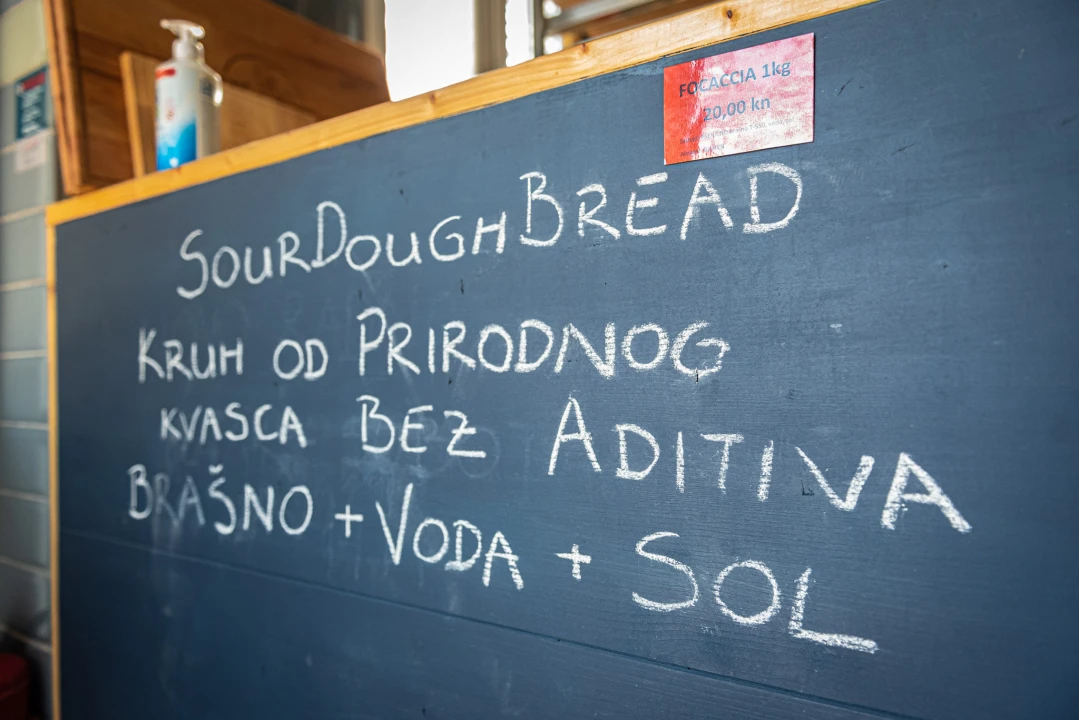 FOCACCIA 1kg
20,00 kn
SOURDOUGHBREAD
KRUH OD PRIRODNOG
KVASCA BEZ ADITIVA
BRAŠNO + VODA + SOL